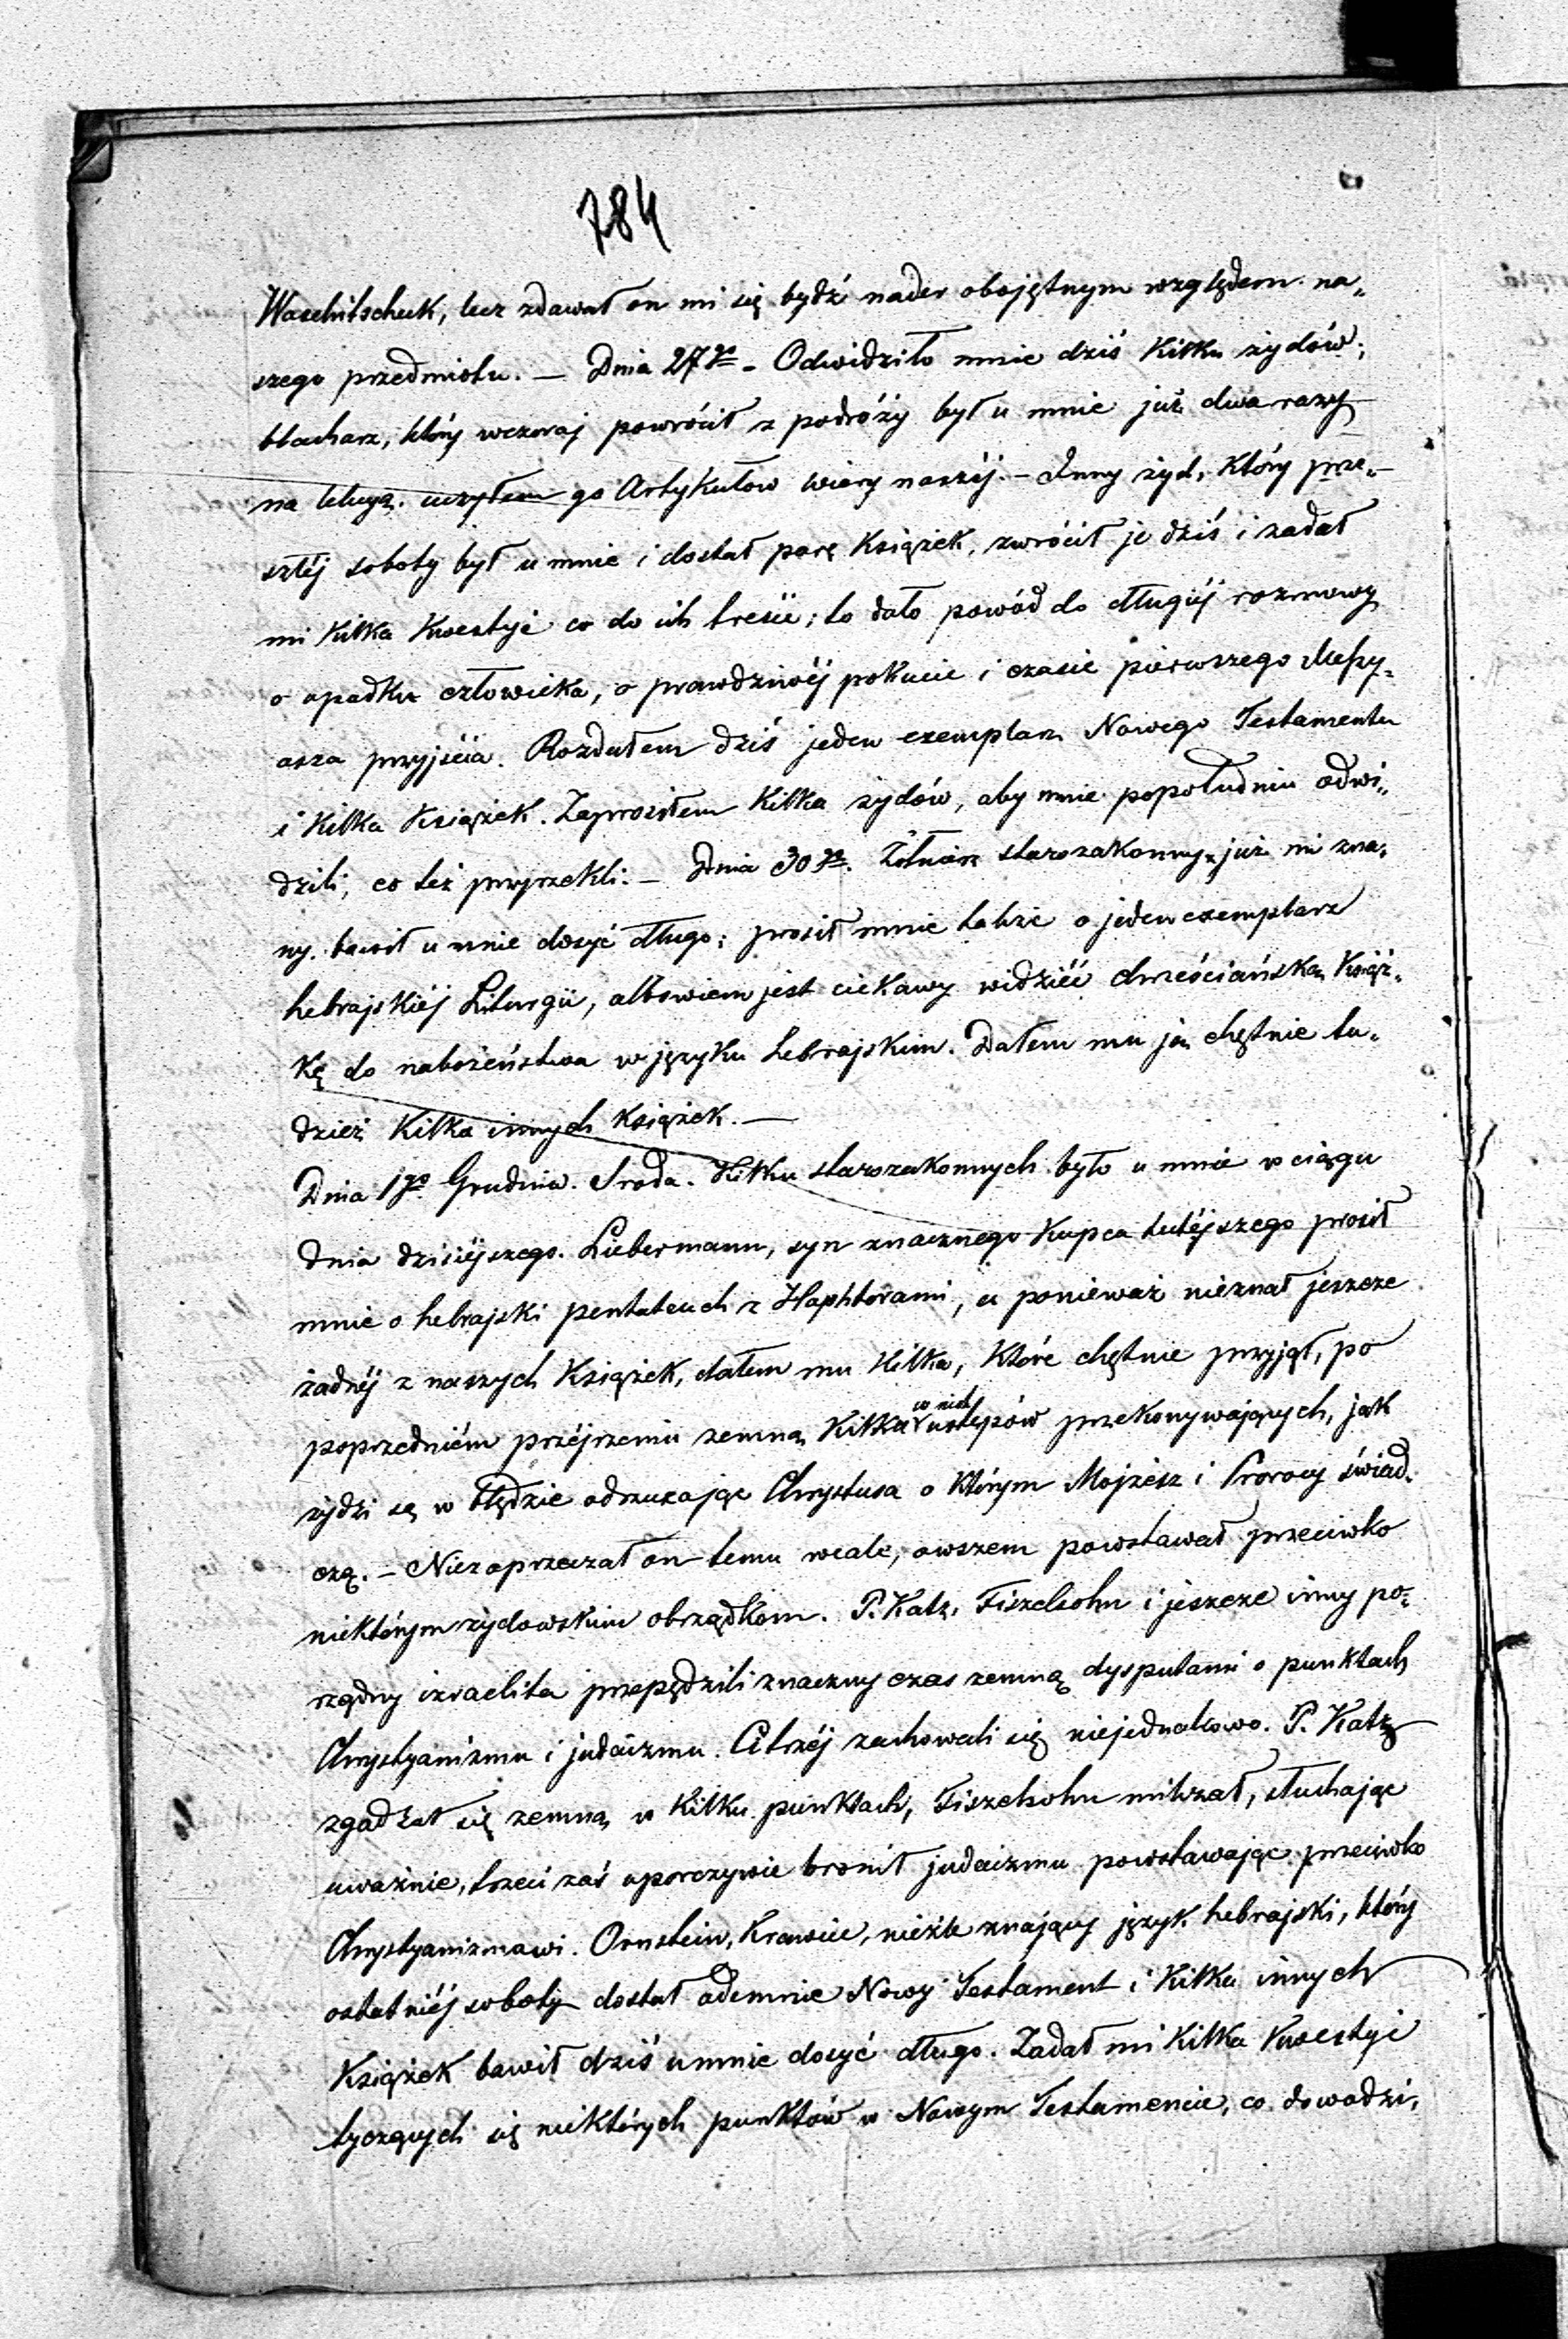 784
Waschitschek, lecz zdawał on mi się bydź nader obojętnym względem na„
szego przedmiotu. — Dnia 27go – Odwidziło mnie dziś kilku żydów;
blacharz, który wczoraj powrócił z podróży był u mnie już dwa razy
na uczyłem go Artykułow wiary naszéj. – Inny żyd, który prze„
szłéj soboty był u mnie i dostał parę książek, zwrócił je dziś i zadał
mi kilka kwestyi co do ich treści; to dało powód do długiéj rozmowy
o upadku człowieka, o prawdziwéj pokucie i czasie pierwszego Messy„
asza przyjścia. Rozdałem dziś jeden exemplarz Nowego Testamentu
i kilka książek. Zaprosiłem kilka żydów, aby mnie popołudniu odwi„
dzili, co też przyrzekli. — Dnia 30go. Żołnierz starozakonny, już mi zna„
ny. bawił u mnie dosyć długo; prosił mnie także o jeden exemplarz
hebrajskiéj Liturgii, albowiem jest ciekawy widzieć chrześciańską książ„
kę do nabożeństwa w języku hebrajskim. Dałem mu ją chętnie tu„
dzież kilka innych książek. —
Dnia 1go Grudnia. Sroda. Kilku starozakonnych było u mnie w ciągu
dnia dzisiéjszego. Liebermann, syn znacznego kupca tutéjszego prosił
mnie o hebrajski pentateuch z Haphtorami, a ponieważ nieznał jeszcze
żadnéj z naszych książek, dałem mu kilka, które chętnie przyjął, po
poprzedniém przéjrzeniu zemną kilka w nich ustępów przekonywających, jak
żydzi są w błędzie odrzucając Chrystusa o którym Mojżesz i Prorocy świad„
czą. – Niezaprzeczał on temu wcale, owszem powstawał przeciwko
niektórym żydowskim obrządkom. P. Katz, Fiszelsohn i jeszcze inny po„
rządny izraelita przepędzili znaczny czas zemną dysputami o punktach
Chrystyanizmu i judaizmu. Ci trzéj zachowali się niejednakowo. P. Katz
zgadzał się zemną w kilku punktach, Fiszelsohn milczał, słuchając
uważnie, trzeci zaś uporczywie bronił judaizmu powstawając przeciwko
Chrystyanizmowi. Ornstein, krawiec, nieźle znający język hebrajski, który
ostatniéj soboty dostał odemnie Nowy Testament i kilka innych
książek bawił dziś u mnie dosyć długo. Zadał mi kilka kwestyi
tyczących się niektórych punktów w Nowym Testamencie, co dowodzi,